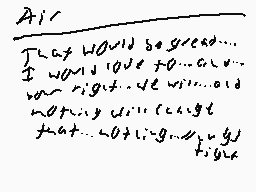 Air
That would be great...
I would love to...and...
your right...we will...and
nothing will change
that...nothing...
right